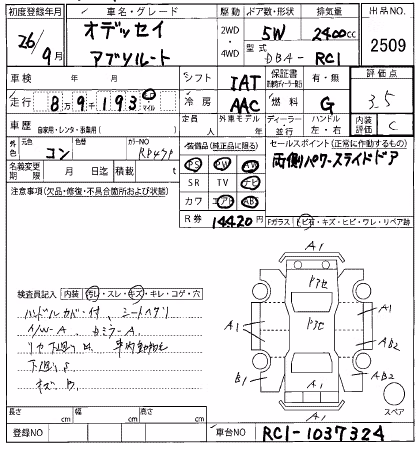 初度登録年月 車名・グレード 駆動 ドア数・形状 排気量 出品NO.
26年9月 オデッセイ アブソルート 2WD・4WD 5W 2400cc 2509
型式 DBA- RC1
車検 年 月 シフト IAT 保証書 有・無 評価点
走行 8万9千193 キロ マイル 冷房 AAC 燃料 G 3.5
車歴 自家用・レンタ・事業用( ) 定員 外車モデル 年 ディーラー・並行 ハンドル 左・右 内装評価 C
外色 元色 コン 色替 カラーNO RP47P
装備品(純正品に限る) セールスポイント(正常に作動するもの)
PS PW AW 両側パワースライドドア
名義変更期限 月 日迄 積載 t SR TV ナビ
注意事項(欠品・修復・不具合箇所および状態) カワ エアB ABS
R券 14420円 Fガラス(トビ石・キズ・ヒビ・ワレ・リペア跡)
A1
ドアセ
検査員記入 内装(汚レ・スレ・キズ・キレ・コゲ・穴)
ハンドルカバー付、シートヘタリ
A/W-A
ドアセ
A1 A1
A1
AB2
下廻りサ
キズ
B1 AB2
A1
スペア
長さ cm 幅 cm 高さ cm
登録NO 車台NO RC1-1037324